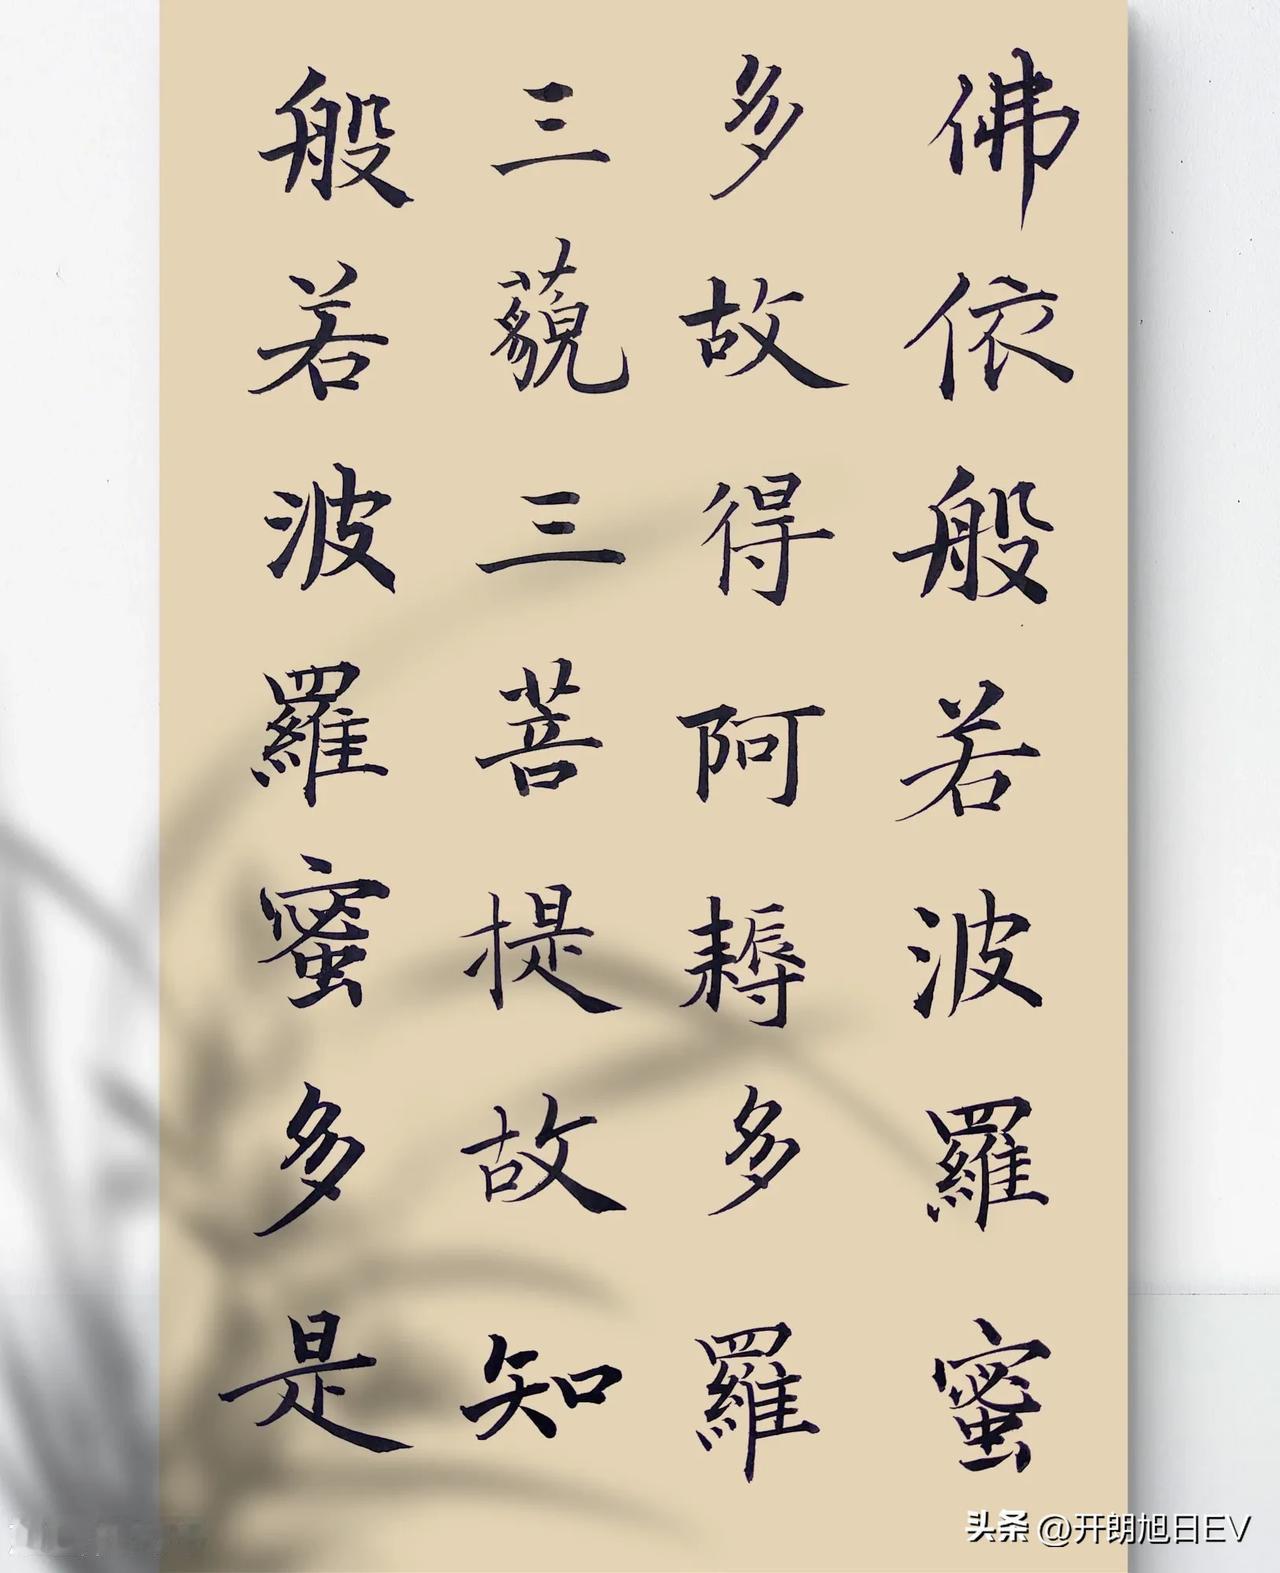 佛依般若波羅蜜
多故得阿耨多羅
三藐三菩提故知
般若波羅蜜多是
头条 @开朗旭日EV